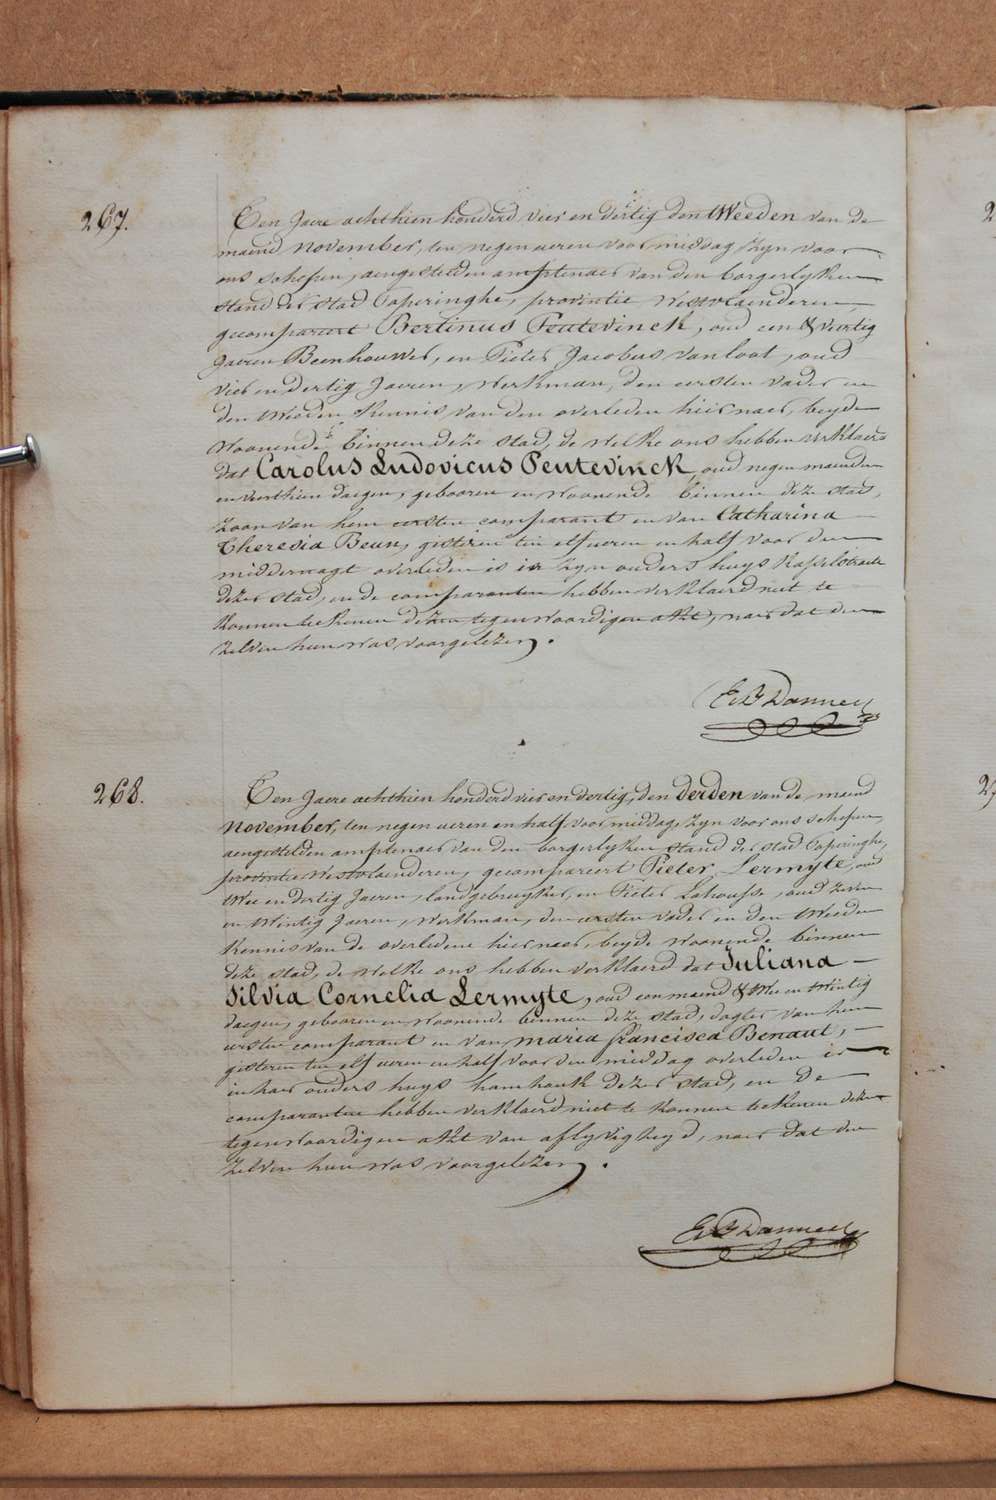 267.
Een Jaere achthien honderd vier en dertig den tWeeden van de
maend November, ten negen ueren voor middag zyn voor
ons schepen, aengestelden amptenaer van den borgerlyken
stand der stad Poperinghe, provintie Westvlaenderen,
gecompareert Bertinus Peutevinck, oud een & veertig
Jaeren Beenhouwer, en Pieter Jacobus vanloot, oud
vier en dertig Jaeren, Werkman, den eersten vader en
den tWeeden Kennis van den overleden hier naer, beyde
Woonende binnen deze stad, de Welke ons hebben verklaerd
dat Carolus Ludovicus Peutevinck, oud negen maenden
en veerthien daegen, gebooren en Woonende binnen deze stad,
zoon van hem eersten comparant en van Catharina
Theresia Beun, gisteren ten elf ueren en half voor den
middernagt overleden is in zyn ouders huys Kasselstraete
dezer stad, en de comparanten hebben verklaerd niet te
Konnen teekenen dezen tegenwoordigen akt, naer dat den
zelven hun Was voorgelezen.
268.
Een Jaere achthien honderd vier en dertig, den derden van de maend
November, ten negen ueren en half voor middag, zyn voor ons schepen,
aengestelden amptenaer van den borgerlyken stand der stad Poperinghe,
provintie Westvlaenderen, gecompareert Pieter Lermyte, oud
twee en dertig Jaeren, landgebruyker, en Pieter Lahousse, oud zeven
en twintig Jaeren, Werkman, den eersten vader en den tWeeden
Kennis van de overledene hier naer, beyde Woonende binnen
deze stad, de Welke ons hebben verklaerd dat Juliana
Silvia Cornelia Lermyte, oud een maend & twee en twintig
daegen, gebooren en Woonende binnen deze stad, dogter van hem
eersten comparant en van Maria francisca Benaut,
gisteren ten elf ueren en half voor den middag overleden is
in haer ouders huys hamhouk dezer stad, en de
comparanten hebben verklaerd niet te Konnen teekenen dezen
tegenwoordigen akt van aflyvigheyd, naer dat den
zelven hun Was voorgelezen.